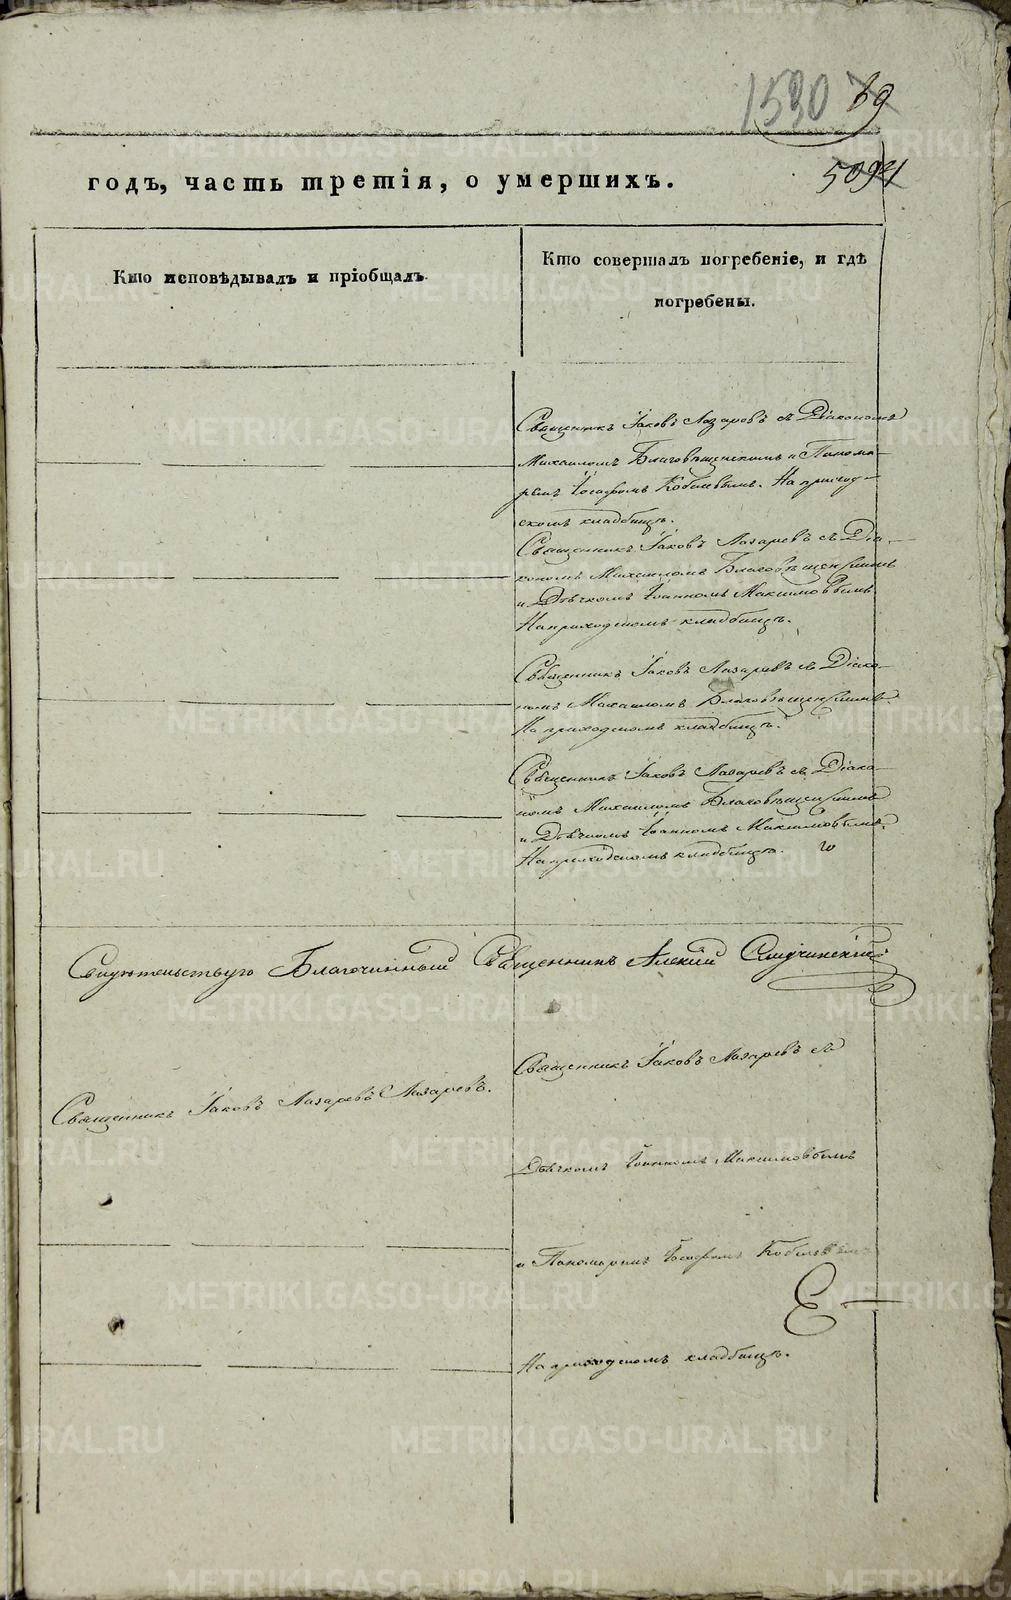 1530 69
5094
годъ, часть третія, о умершихъ.
Кто исповѣдывалъ и пріобщалъ.
Кто совершалъ погребеніе, и гдѣ
погребены.
Священникъ Іаковъ Лазаревъ съ Діакономъ
Михаиломъ Благовѣщенскимъ и Понома-
ремъ Іосифомъ Кобылевымъ. На приход-
скомъ кладбищѣ.
Священникъ Іаковъ Лазаревъ съ Діа-
кономъ Михаиломъ Благовѣщенскимъ
и Дьячкомъ Іоанномъ Максимовымъ.
На приходскомъ кладбищѣ.
Священникъ Іаковъ Лазаревъ съ Діако-
номъ Михаиломъ Благовѣщенскимъ.
На приходскомъ кладбищѣ.
Священникъ Іаковъ Лазаревъ съ Діако-
номъ Михаиломъ Благовѣщенскимъ
и Дьячкомъ Іоанномъ Максимовымъ.
На приходскомъ кладбищѣ.
Свидѣтельствую Благочинный Священникъ Алексій
Священникъ Іаковъ Лазаревъ Лазаревъ.
Священникъ Іаковъ Лазаревъ съ
Дьячкомъ Іоанномъ Максимовымъ
и Пономаремъ Іосифомъ
На приходскомъ кладбищѣ.
METRIKI.GASO-URAL.RU